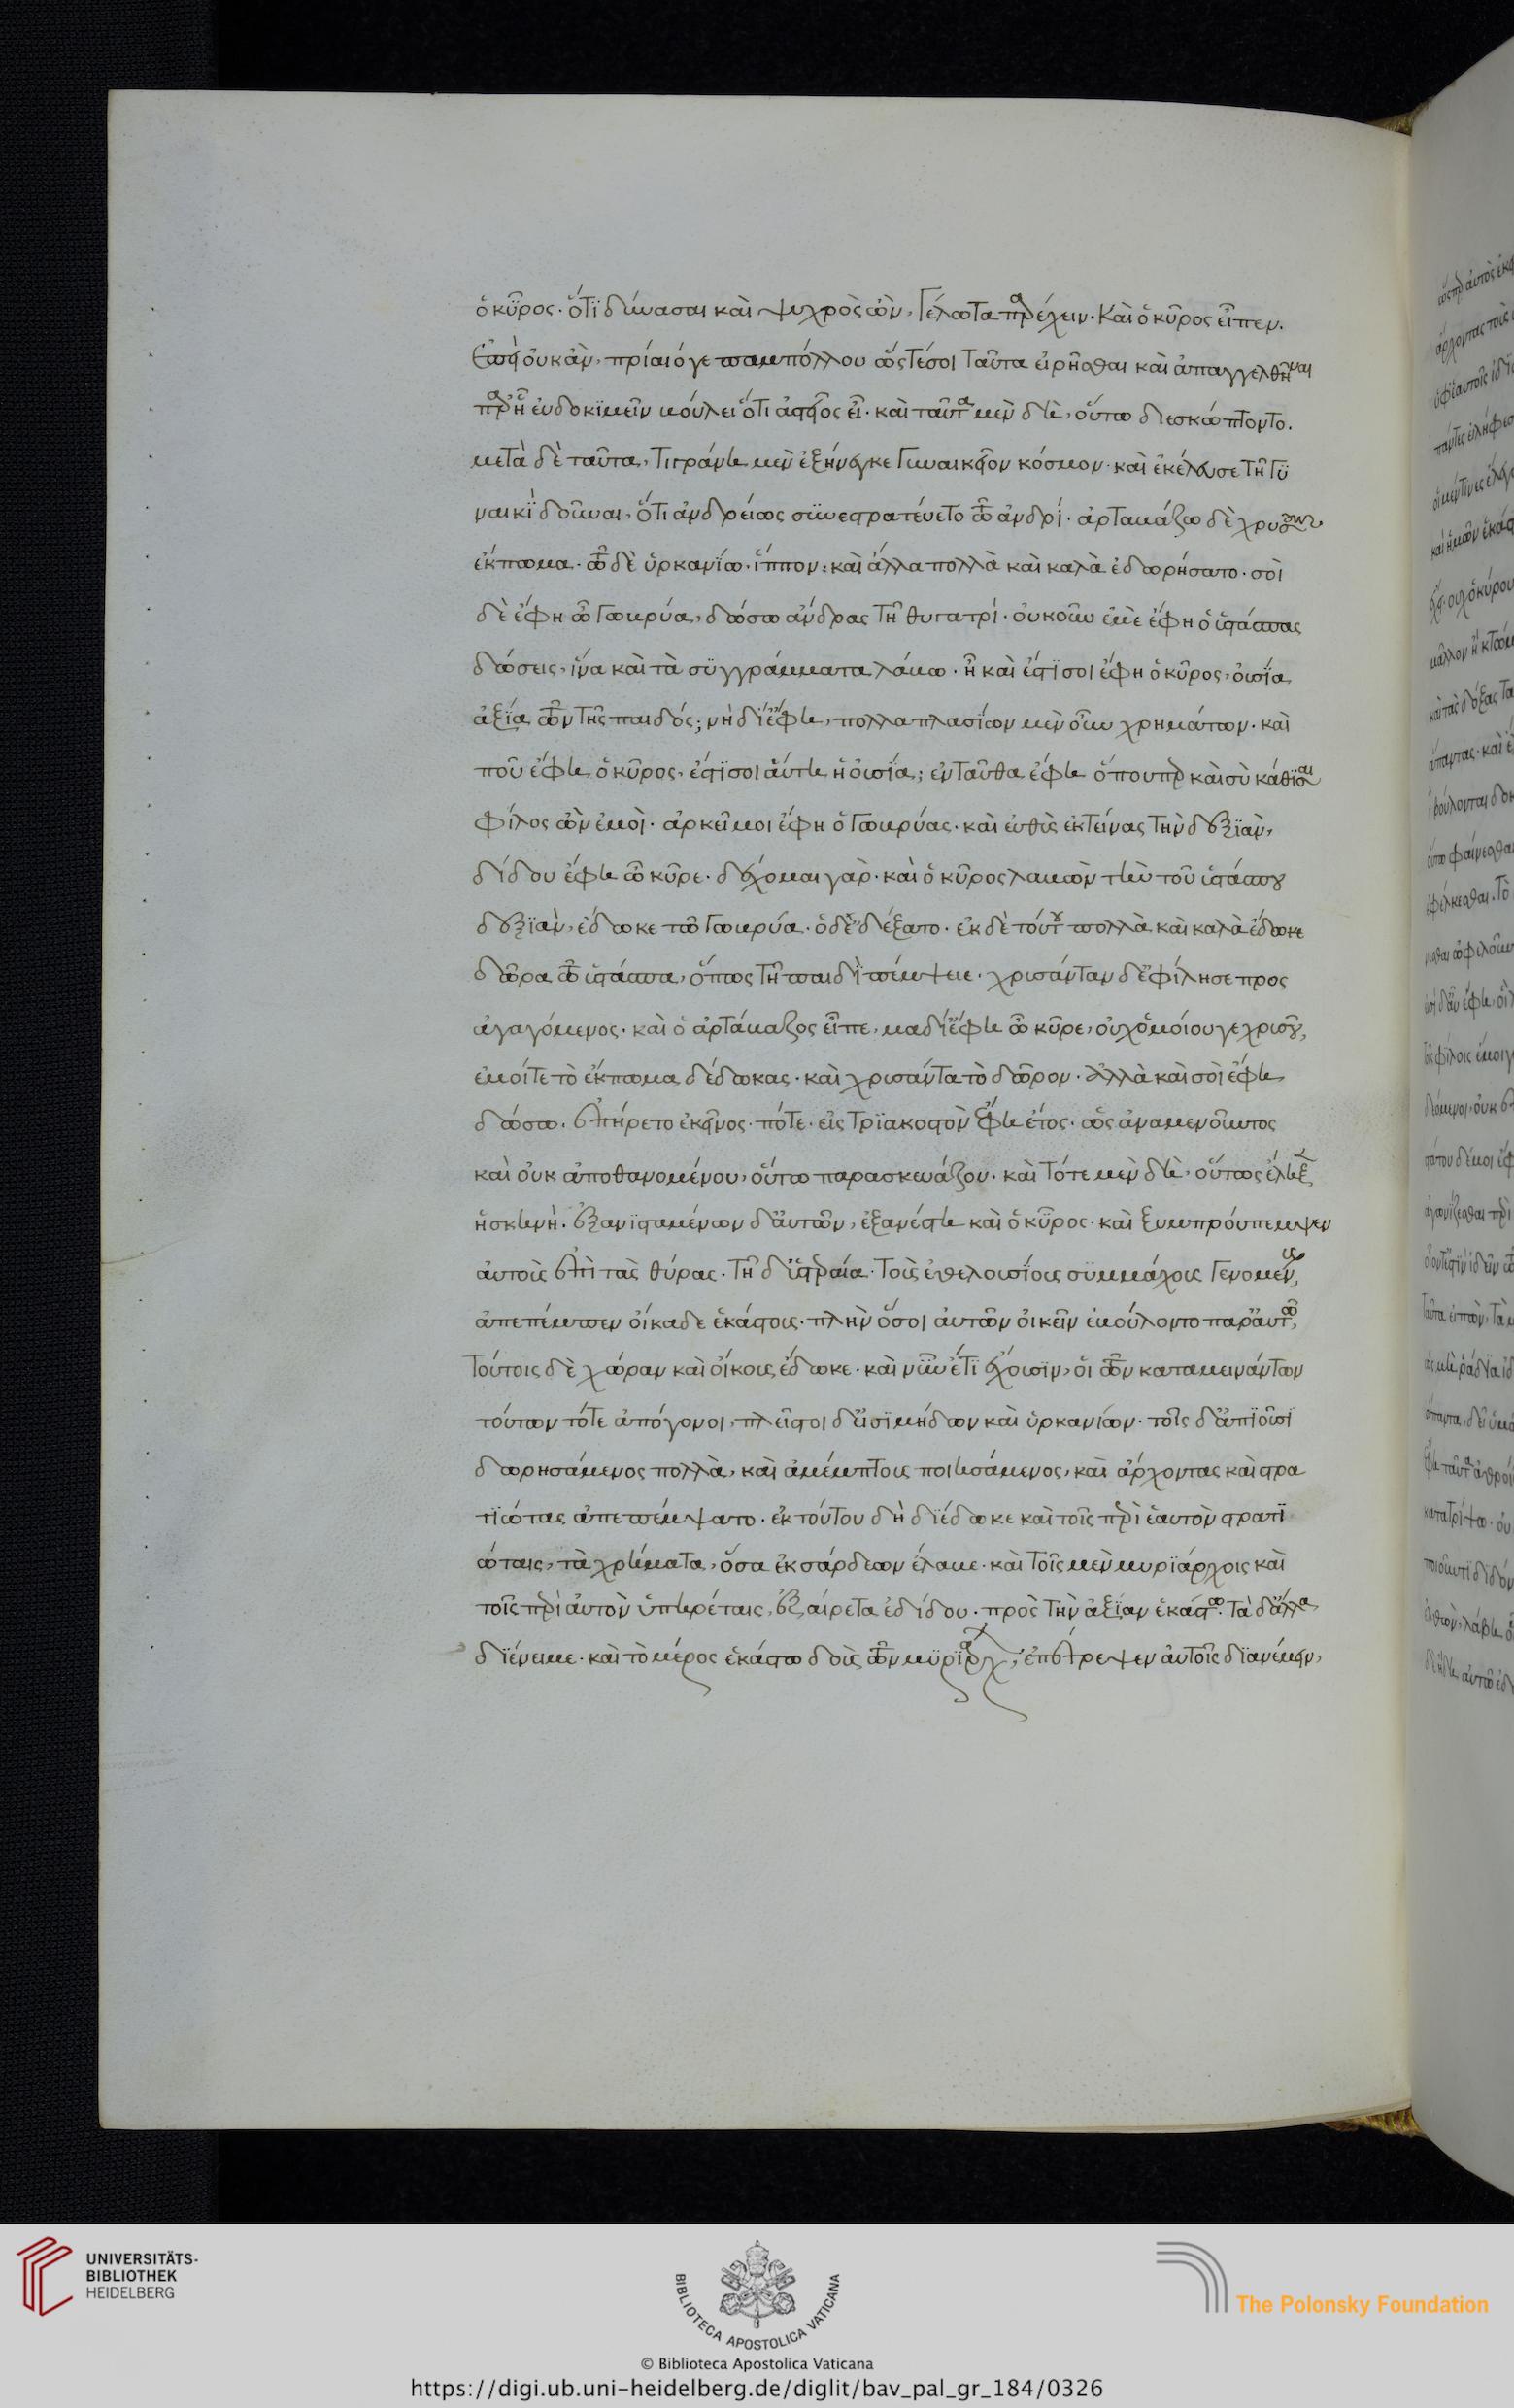 ὁ κῦρος· ὅτι δύνασαι καὶ ψυχρὸς ὢν, γέλωτα παρέχειν. Καὶ ὁ κῦρος εἶπεν.
οὐκ ἂν, πρίαιό γε παμπόλλου ὥστέ σοι ταῦτα εἰρῆσθαι καὶ ἀπαγγελθῆναι
παρ' ᾗ εὐδοκιμεῖν βούλει ὅτι ἀστεῖος εἶ. καὶ ταῦτα μὲν δὴ, οὕτω διεσκώπτοντο.
μετὰ δὲ ταῦτα, τιγράνη μὲν ἐξήνεγκε γυναικεῖον κόσμον· καὶ ἐκέλευσε τῇ γυ
ναικὶ δοῦναι, ὅτι ἀνδρείως συνεστρατεύετο τῷ ἀνδρί. ἀρταβάζω δὲ χρυσοῦν
ἔκπωμα· τῷ δὲ ὑρκανίω· ἵππον: καὶ ἄλλα πολλὰ καὶ καλὰ ἐδωρήσατο. σοὶ
δὲ ἔφη ὦ γωβρύα, δώσω ἄνδρας τῇ θυγατρί. οὐκοῦν ἐμὲ ἔφη ὁ ὑστάσπας
δώσεις, ἵνα καὶ τὰ συγγράμματα λάβω. ἦ καὶ ἔστι σοι ἔφη ὁ κῦρος, οὐσία
ἀξία τῶν τῆς παιδός; νὴ δί' ἔφη, πολλαπλασίων μὲν οὖν χρημάτων. καὶ
ποῦ ἔφη ὁ κῦρος, ἔστι σοι αὕτη ἡ οὐσία; ἐνταῦθα ἔφη ὅπουπερ καὶ σὺ κάθισαι
φίλος ὢν ἐμοὶ. ἀρκεῖ μοι ἔφη ὁ γωβρύας. καὶ εὐθὺς ἐκτείνας τὴν δεξιὰν,
δίδου ἔφη ὦ κῦρε. δέχομαι γάρ. καὶ ὁ κῦρος λαβὼν τὴν τοῦ ὑστάσπου
δεξιὰν, ἔδωκε τῷ γωβρύα. ὁ δ' ἐδέξατο. ἐκ δὲ τούτου πολλὰ καὶ καλὰ ἔδωκε
δῶρα τῷ ὑστάσπα, ὅπως τῇ παιδὶ πέμψειε. χρυσάνταν δ' ἐφίλησε προς
αγαγόμενος. καὶ ὁ ἀρτάβαζος εἶπε, μαδί' ἔφη ὦ κῦρε, οὐχ ὁμοίου γε χρυσοῦ,
ἐμοί τε τὸ ἔκπωμα δέδωκας. καὶ χρυσάντα τὸ δῶρον. ἀλλὰ καὶ σοὶ ἔφη
δώσω. ἐπήρετο ἐκεῖνος. πότε. εἰς τριακοστὸν ἔφη ἔτος. ὡς ἀναμενοῦντος
καὶ οὐκ ἀποθανομένου, οὕτω παρασκευάζου. καὶ τότε μὲν δὴ, οὕτως ἔληξεν
ἡ σκηνὴ. ἐξανισταμένων δ' αὐτῶν, ἐξανέστη καὶ ὁ κῦρος· καὶ ξυμπρούπεμψεν
αὐτοὺς ἐπὶ τὰς θύρας. τῇ δ' ὑστεραία. τοὺς ἐθελουσίους συμμάχους γενομένους,
ἀπεπέμπεν οἴκαδε ἑκάστους. πλὴν ὅσοι αὐτῶν οἰκεῖν ἐβούλοντο παρ' αὐτῷ,
τούτοις δὲ χώραν καὶ οἴκους ἔδωκε. καὶ νῦν ἔτι ἔχουσιν, οἱ τῶν καταμεινάντων
τούτων τότε ἀπόγονοι, πλεῖστοι δ' εἰσὶ μήδων καὶ ὑρκανίων. τοῖς δ' ἀπιοῦσι
δωρησάμενος πολλὰ, καὶ ἀμέμπτους ποιησάμενος, καὶ ἄρχοντας καὶ στρα
τιώτας ἀπεπέμψατο. ἐκ τούτου δὴ διέδωκε καὶ τοῖς περὶ ἑαυτὸν στρατι
ώταις, τὰ χρήματα, ὅσα ἐκ σάρδεων ἔλαβε. καὶ τοῖς μὲν μυριάρχοις καὶ
τοῖς περὶ αὐτὸν ὑπηρέταις, ἐξαίρετα ἐδίδου. πρὸς τὴν ἀξίαν ἑκάστω. τὰ δ' ἄλλα
διένειμε. καὶ τὸ μέρος ἑκάστω δοὺς τῶν μυριάρχων, ἐπέτρεψεν αὐτοῖς διανέμειν,
UNIVERSITÄTS-
BIBLIOTHEK
HEIDELBERG
BIBLIOTECA APOSTOLICA VATICANA
The Polonsky Foundation
© Biblioteca Apostolica Vaticana
https://digi.ub.uni-heidelberg.de/diglit/bav_pal_gr_184/0326